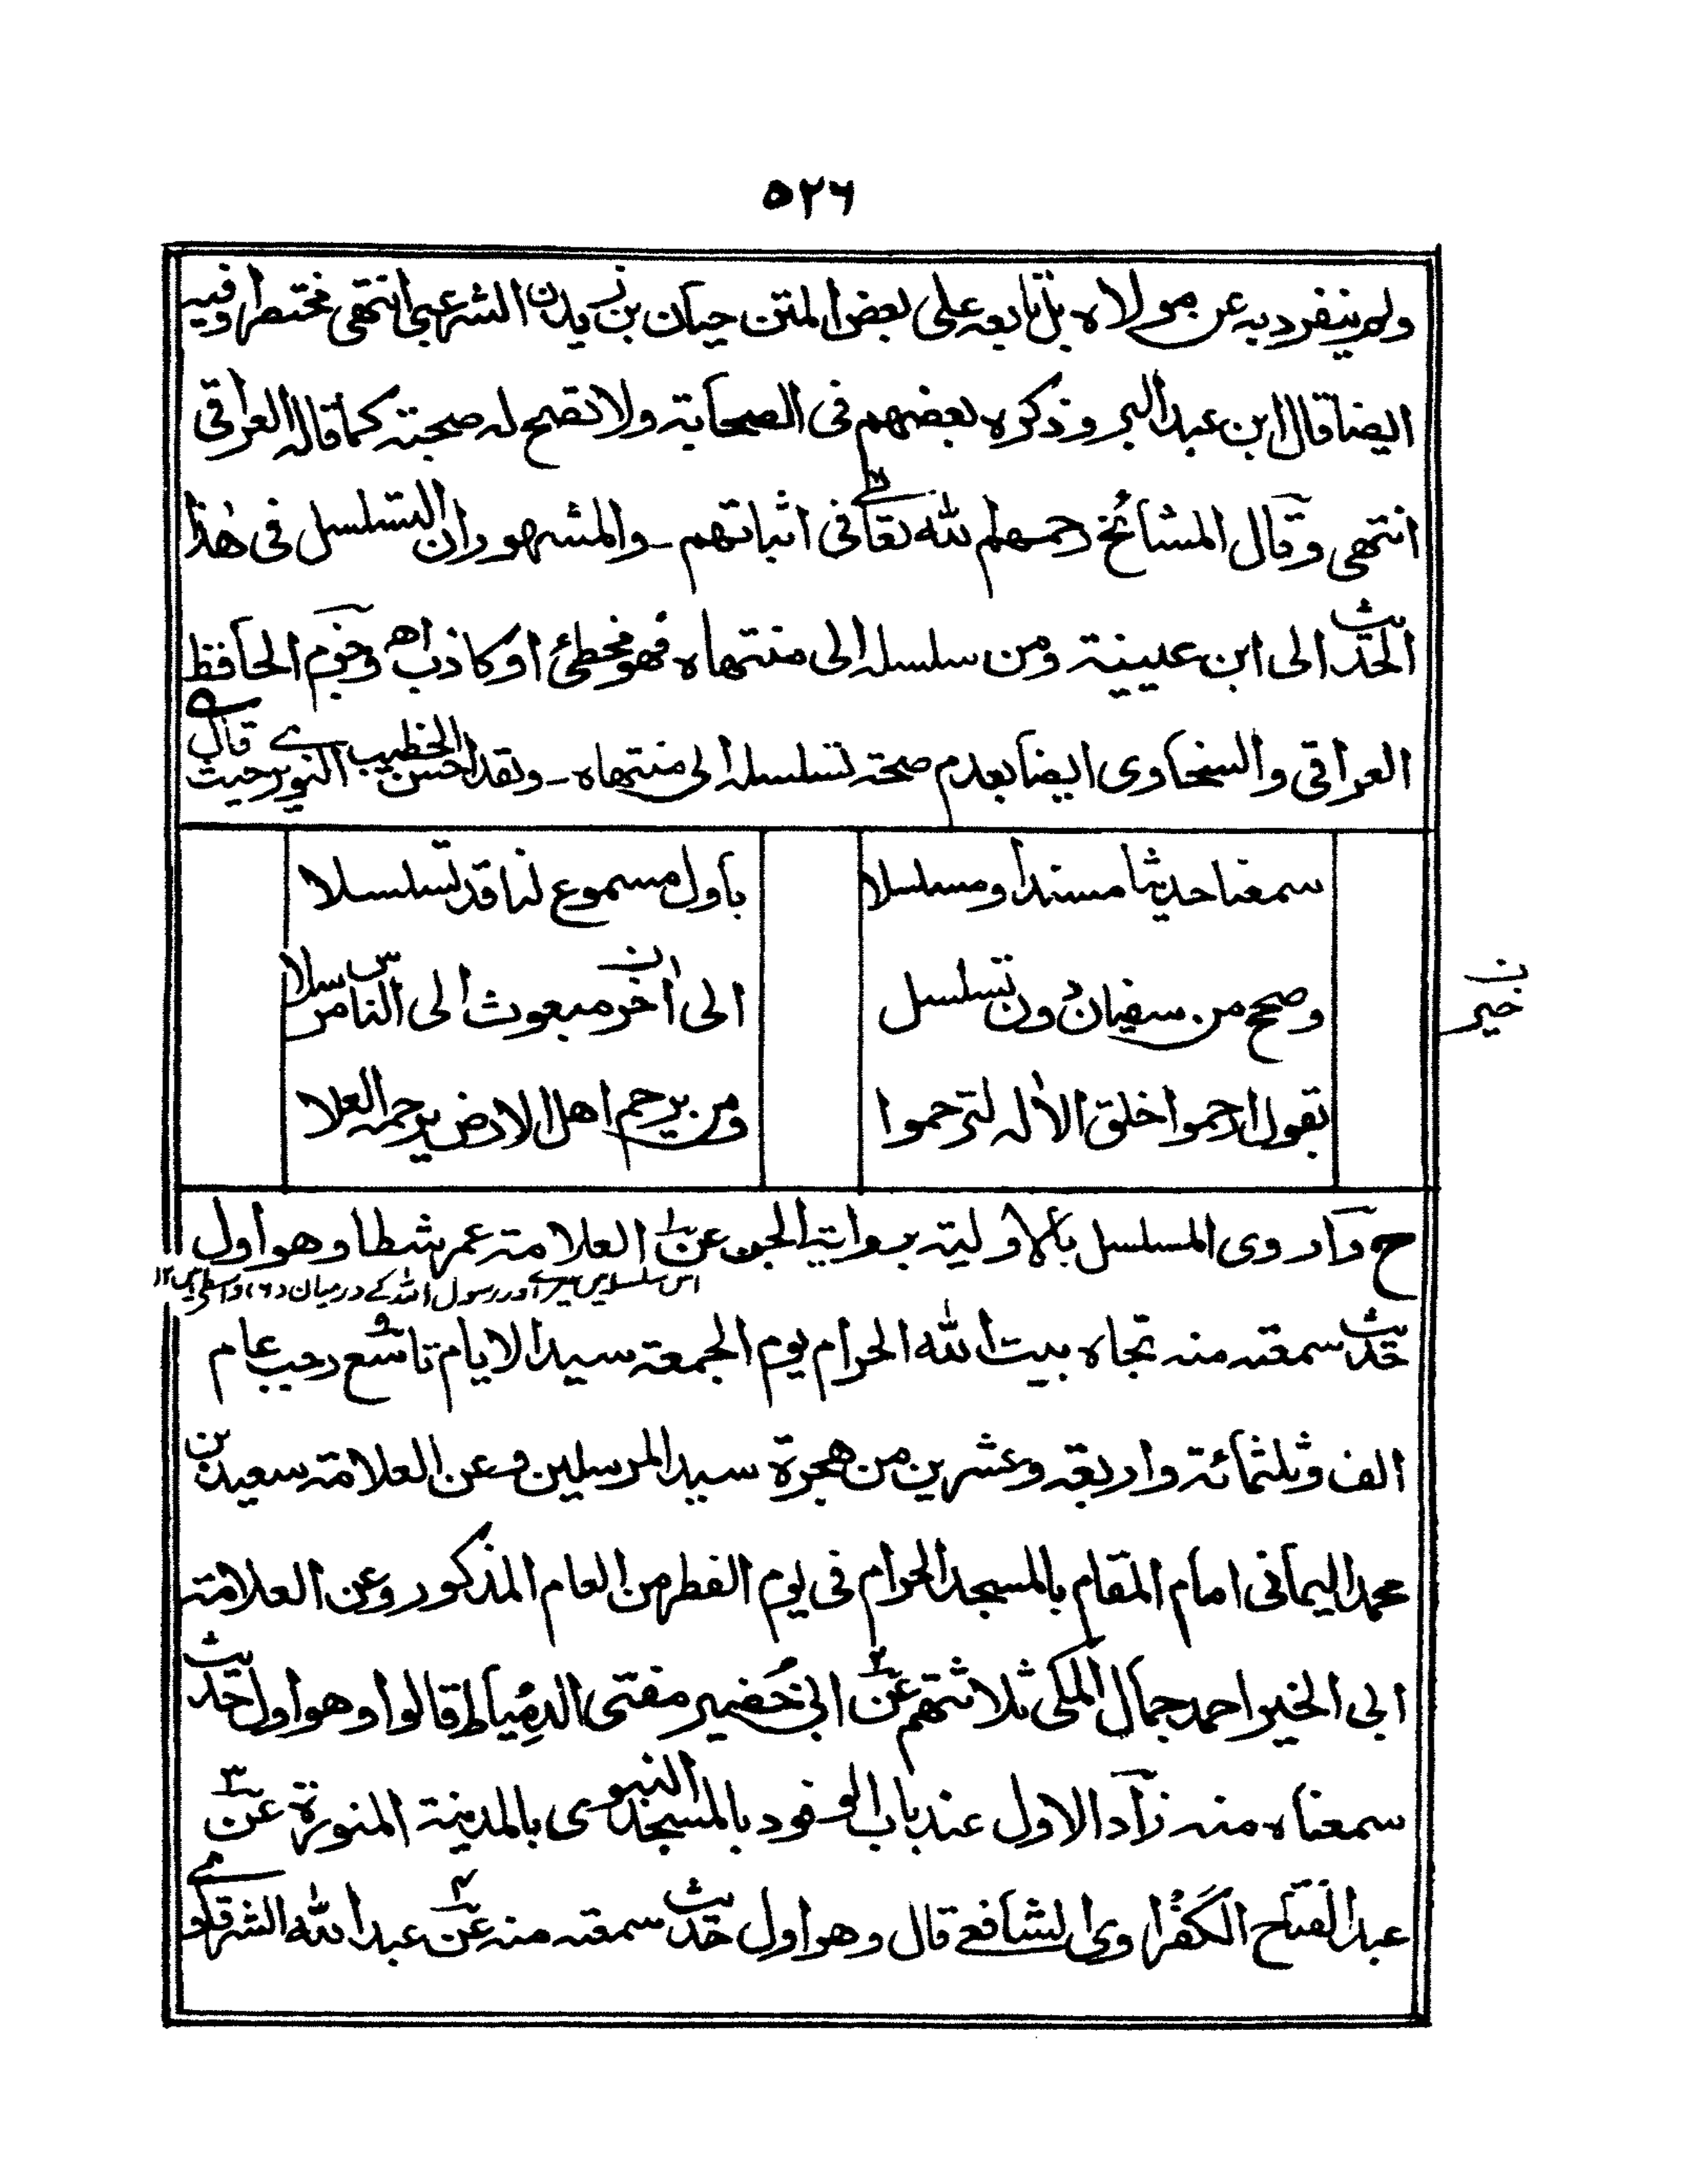 ٥٢٦
ولم ينفرد به عن مولاه بل تابعه على بعض المتن حبان بن زيدن الشرعبي انتهى مختصرا وفيه
ايضا قال ابن عبد البر وذكره بعضهم فى الصحابة ولا تصح له صحبته كما قاله العراقي
انتهى وقال المشائخ رحمهم الله تعالى فى اثباتهم ـ والمشهور ان التسلسل فى هذا
الحديث الى ابن عيينة ومن سلسله الى منتهاه فهو مخطئ او كاذب اه وجزم الحافظ
العراقي والسخاوى ايضا بعدم صحة تسلسله الى منتهاه ـ ولقد احسن الخطيب النويري حيث قال
سمعنا حديثا مسندا ومسلسلا باول مسموع لنا قد تسلسلا
وصح من سفيان دون تسلسل الى آخر مبعوث الى الناس مرسلا
ن خير
يقول ارحموا خلق الاله لترحموا ومن يرحم اهل الارض يرحمه العلا
ح وآروى المسلسل بالاولية عن العلامة عمر شطا وهو اول
اس سلسله میں میرے اور رسول اللہ کے درمیان (٢٦) واسطے ہیں ١٢
حديث سمعته منه تجاه بيت الله الحرام يوم الجمعة سيد الايام تاسع رجب عام
الف وثلثمائة واربعة وعشرين من هجرة سيد المرسلين وعن العلامة سعيد بن
محمد اليمانى امام المقام بالمسجد الحرام فى يوم الفطر من العام المذكور وعن العلامة
ابى الخير احمد جمال المكى ثلاثتهم عن ٢ ابى خضير مفتى الدمياط قالوا وهو اول حديث
سمعناه منه زاد الاول عند باب الوفود بالمسجد النبوى بالمدينة المنورة عن ٣
عبد الفتاح الكفراوى الشافعے قال وهو اول حديث سمعته منه عن ٤ عبد الله الشرقاوے